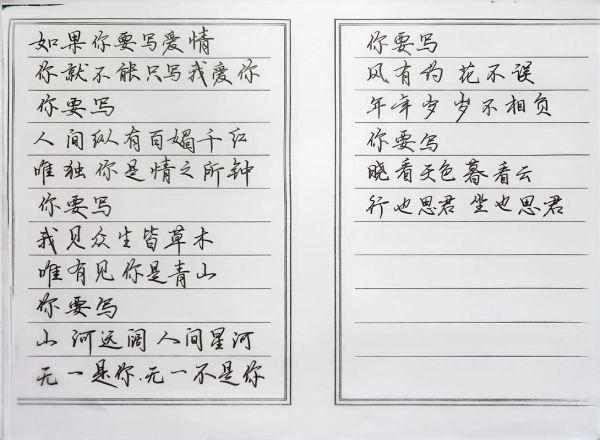 如果你要写爱情
你就不能只写我爱你
你要写
人间纵有百媚千红
唯独你是情之所钟
你要写
我见众生皆草木
唯有见你是青山
你要写
山河远阔 人间星河
无一是你.无一不是你
你要写
风有约 花不误
年年岁岁不相负
你要写
晓看天色暮看云
行也思君 坐也思君